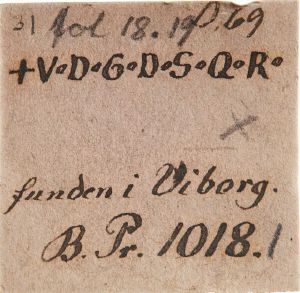 31 fol 18.19 P.69
+V•D•G•D•S•Q•R•
X
funden i Viborg.
B. Pr. 1018.1